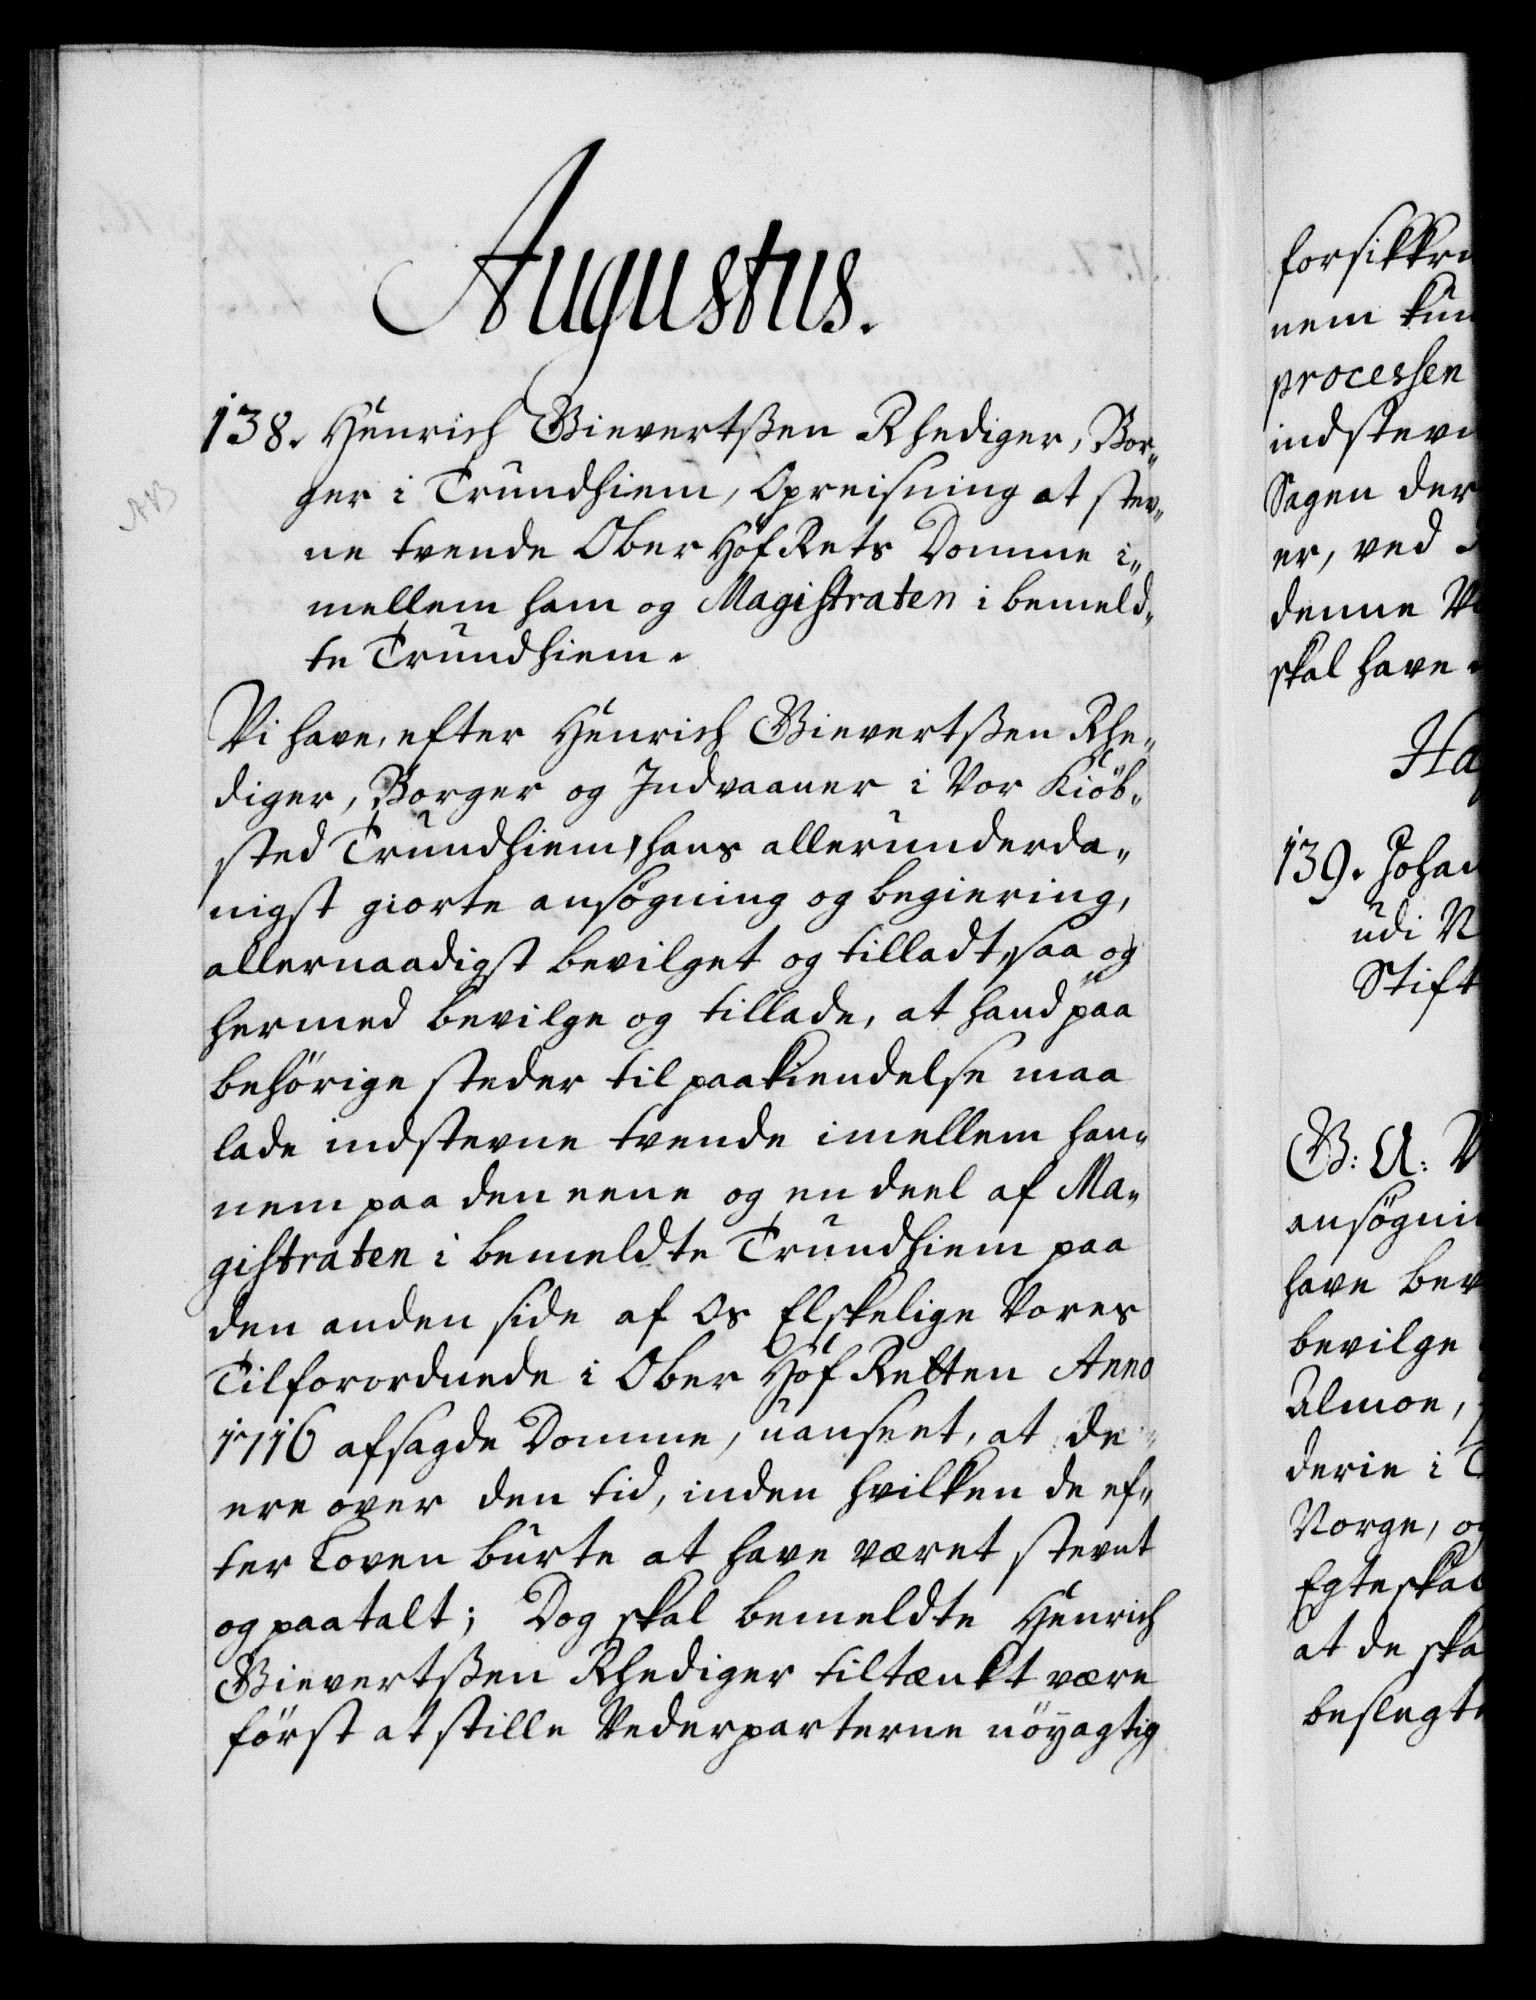 Augustus.
138. Henrich Sievertßen Rhediger, Bor„
ger i Trundhiem, Opreisning at stev„
ne tvende Ober Hof Rets Domme i„
mellem ham og Magistraten i bemeld„
te Trundhiem.
NB
Vi have, efter Henrich Sievertßen Rhe„
diger, Borger og Indvaaner i Vor Kiöb„
sted Trundhiem, hans allerunderda„
nigst giorte ansögning og begiering,
allernaadigst bevilget og tilladt, saa og
hermed bevilge og tillade, at hand paa
behörige steder til paakiendelse maa
lade indstevne tvende imellem han„
nem paa den eene og en deel af Ma„
gistraten i bemeldte Trundhiem paa
den anden side af Os Elskelige Vores
Tilforordnede i Ober Hof Retten Anno
1716 afsagde Domme, uanseet, at de
ere over den tid, inden hvilken de ef„
ter Loven burte at have været stevnt
og paatalt; Dog skal bemeldte Henrich
Sievertßen Rhediger tiltænkt være
först at stille Vederparterne nöyagtig
forsikkri
nem kun
processen
indstevn
Sagen der
er, ved
denne V
skal have
Ha
139. Johan
udi N
Stift
G: A: V
ansögnin
have bev
bevilge
Almoe,
derie i T
Norge, og
Egteskab
at de ska
beslegte